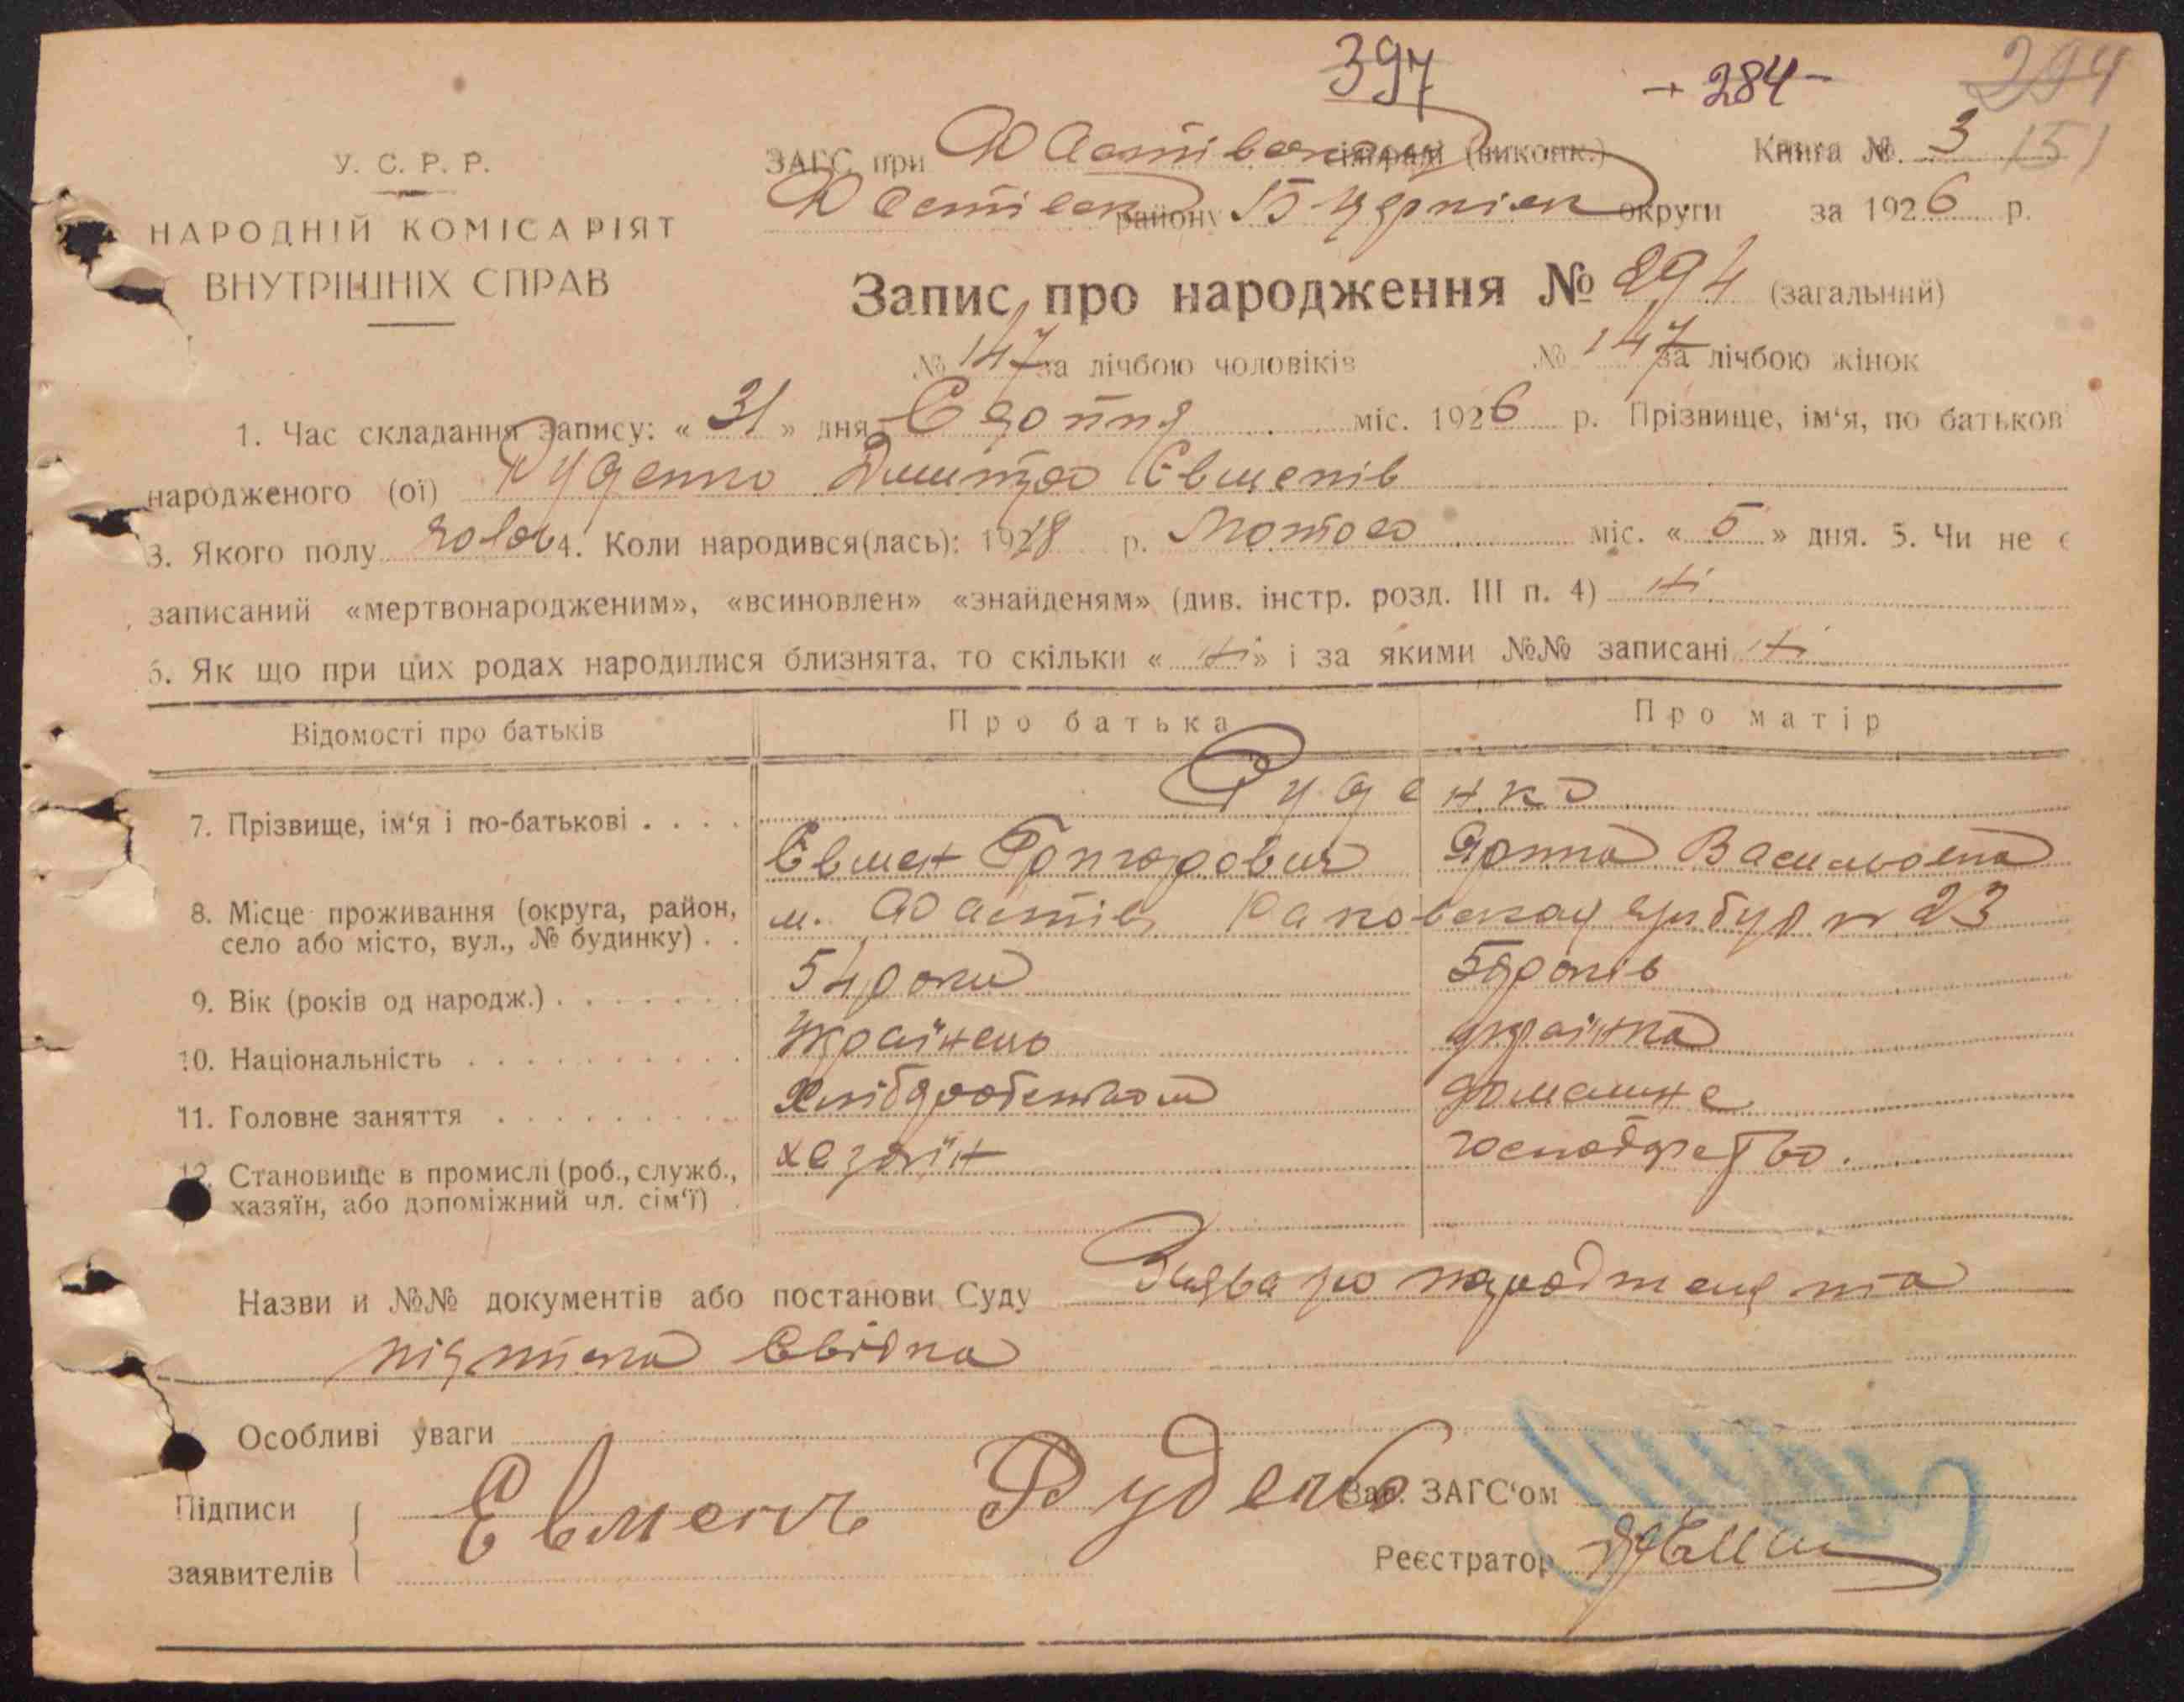 397
284
294
У. С. Р. Р.
ЗАГС при Фастівському (виконк.) Книга №. 3 151
НАРОДНІЙ КОМІСАРІЯТ
Фастівськ району Б Церківськ округи за 1926 р.
ВНУТРІШНІХ СПРАВ
Запис про народження № 294 (загальний)
№ 147 за лічбою чоловіків № 147 за лічбою жінок
1. Час складання запису: « 31 » дня Серпня міс. 1926 р. Прізвище, ім‘я, по батьков
народженого (ої) Руденко Дмитро Євменів
3. Якого полу чолов 4. Коли народився(лась): 1918 р. Лютого міс. « 5 » дня. 5. Чи не є
записаний «мертвонародженим», «всиновлен» «знайденям» (див. інстр. розд. III п. 4) ні
6. Як що при цих родах народилися близнята, то скільки « ні » і за якими №№ записані ні
Відомості про батьків Про батька Про матір
7. Прізвище, ім‘я і по-батькові Руденко
Євмен Григорович Ярина Васильовна
8. Місце проживання (округа, район, м. Фастів Раковського буд № 23
село або місто, вул., № будинку)
9. Вік (років од народж.) 54 роки років
10. Національність Українець українка
11. Головне заняття Хліборобством домашнє
12. Становище в промислі (роб., служб., хазяїн господарство.
хазяїн, або допоміжний чл. сім‘ї)
Назви и №№ документів або постанови Суду Заява про народження та
підписка Свідка
Особливі уваги
Підписи Евменъ Руденко Зав. ЗАГС‘ом
заявителів Реєстратор